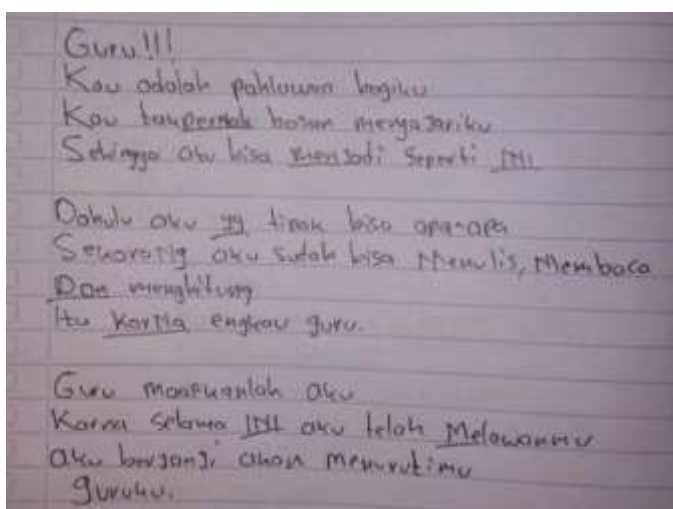 Guru!!!
Kau adalah pahlawan bagiku
Kau takpernah bosan mengajariku
Sehingga aku bisa menjadi seperti INI
Dahulu aku yg tidak bisa apa-apa
Sekarang aku sudah bisa Menulis, Membaca
Dan menghitung
Itu karna engkau guru.
Guru maafkanlah aku
Karna selama INI aku telah Melawanmu
aku berjanji akan menurutimu
guruku.